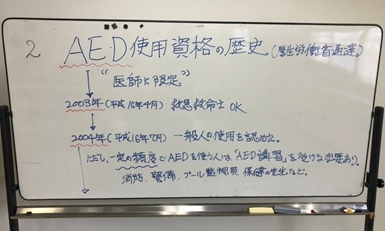 2 AED使用資格の歴史(厚生労働省通達)
"医師に限定"
2003年(平成15年4月) 救急救命士 OK
2004年(平成16年7月) 一般人の使用を認めた。
ただし、一定の頻度でAEDを使う人は「AED講習」を受ける必要あり。
消防、警備、プール監視員 保健の先生など。